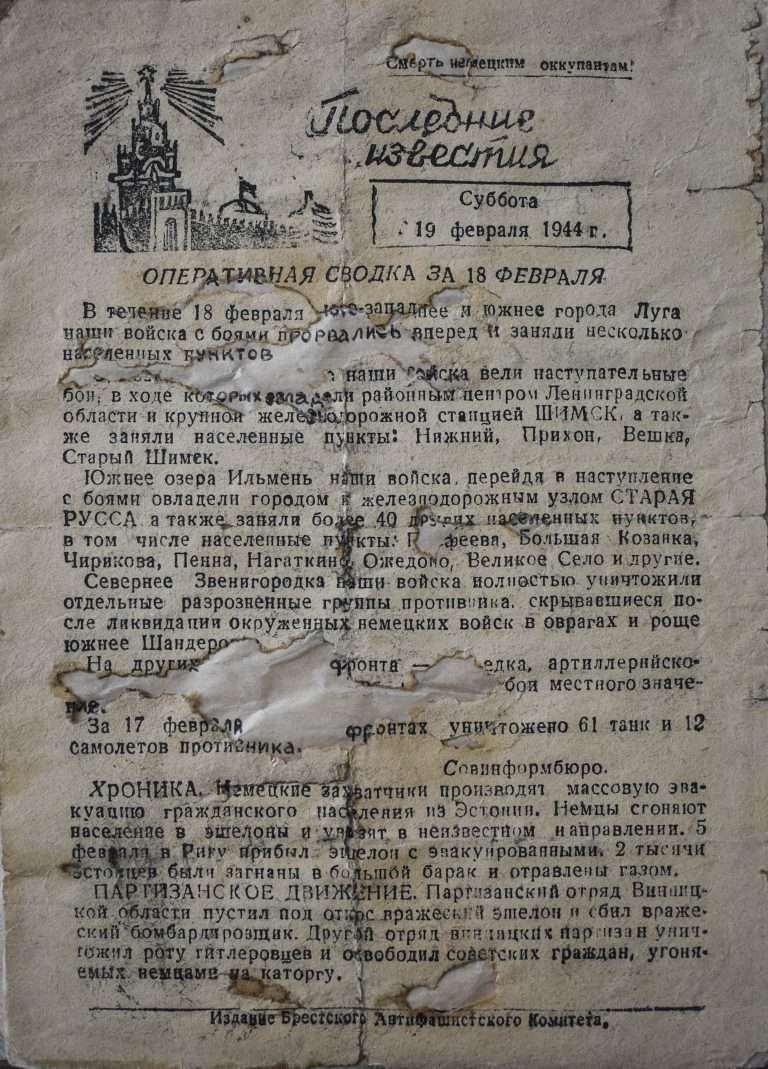 Смерть немецким оккупантам!
Последние
известия
Суббота
19 февраля 1944 г.
ОПЕРАТИВНАЯ СВОДКА ЗА 18 ФЕВРАЛЯ
В течение 18 февраля юго-западнее и южнее города Луга
наши войска с боями прорвались вперед и заняли несколько
населенных пунктов
наши войска вели наступательные
бои, в ходе которых овладели районным центром Ленинградской
области и крупной железнодорожной станцией ШИМСК, а так-
же заняли населенные пункты: Нижний, Прихон, Вешка,
Старый Шимск.
Южнее озера Ильмень наши войска, перейдя в наступление
с боями овладели городом и железнодорожным узлом СТАРАЯ
РУССА, а также заняли более 40 других населенных пунктов,
в том числе населенные пункты: Большая Козанка,
Чирикова, Пенна, Нагаткино, Ожедово, Великое Село и другие.
Севернее Звенигородка наши войска полностью уничтожили
отдельные разрозненные группы противника, скрывавшиеся по-
сле ликвидации окруженных немецких войск в оврагах и роще
южнее
На других фронта — артиллерийско-
бои местного значе-
ние.
За 17 февраля фронтах уничтожено 61 танк и 12
самолетов противника.
Совинформбюро.
ХРОНИКА. Немецкие захватчики производят массовую эва-
куацию гражданского населения из Эстонии. Немцы сгоняют
население в эшелоны и увозят в неизвестном направлении. 5
февраля в Ригу прибыл эшелон с эвакуированными. 2 тысячи
эстонцев были загнаны в большой барак и отравлены газом.
ПАРТИЗАНСКОЕ ДВИЖЕНИЕ. Партизанский отряд Винниц-
кой области пустил под откос вражеский эшелон и сбил враже-
ский бомбардировщик. Другой отряд винницких партизан унич-
тожил роту гитлеровцев и освободил советских граждан, угоня-
емых немцами на каторгу.
Издание Брестского Антифашистского Комитета.